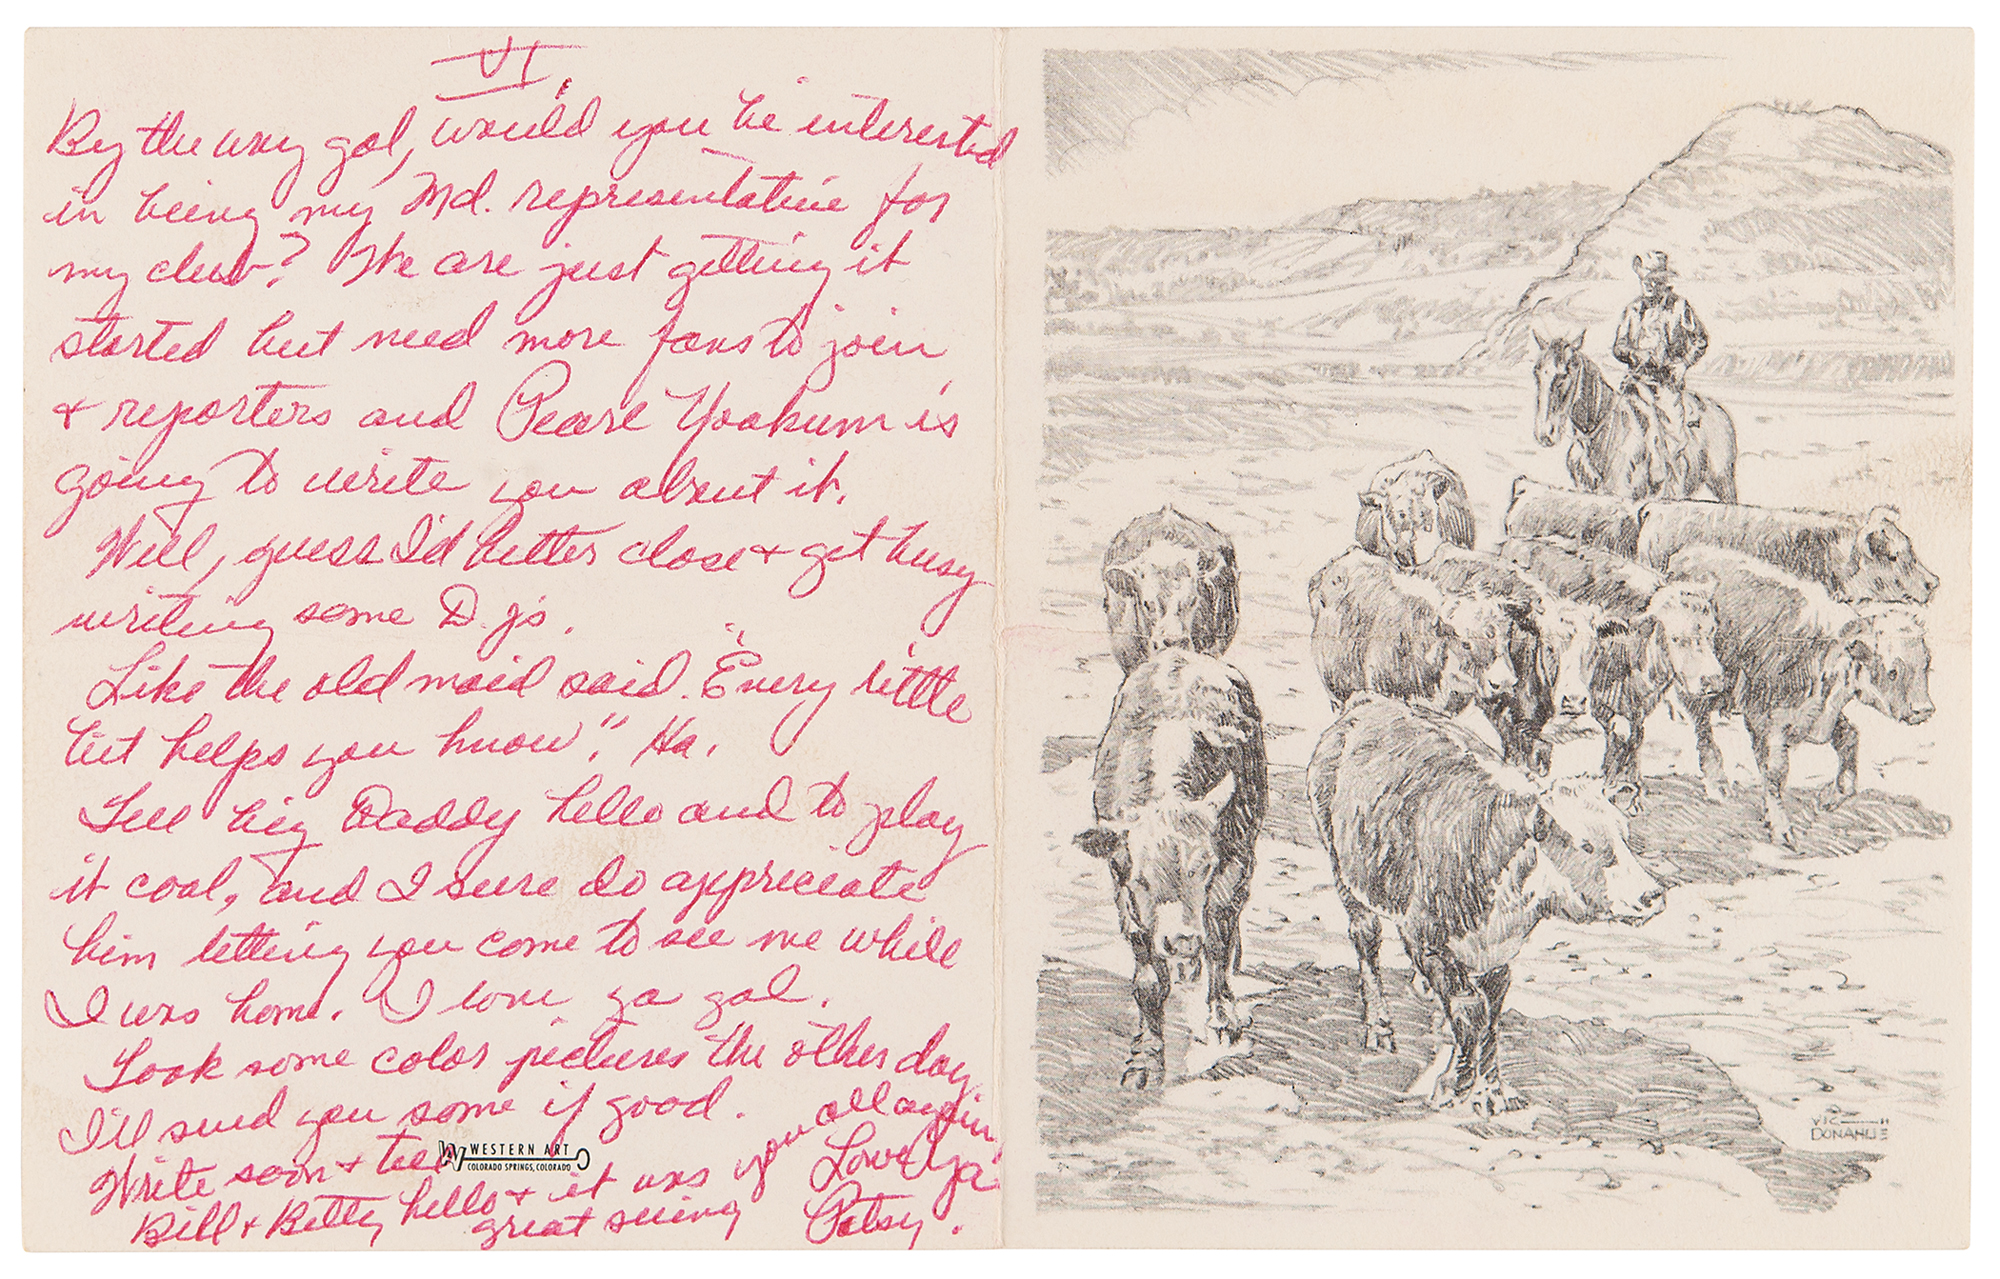 VI
By the way gal, would you be interested
in being my Md. representative for
my club? We are just getting it
started but need more fans to join
& reporters and Pearl Yoakum is
going to write you about it.
Well, guess I'd better close & get busy
writing some D.J's.
Like the old maid said. "Every little
bit helps you know". Ha.
Tell big Daddy hello and to play
it cool, and I sure do appreciate
him letting you come to see me while
I was home. I love ya gal.
Took some color pictures the other day
I'll send you some if good.
Write soon & tell
Bill & Betty hello & it was
great seeing you all again,
Love Ya
Patsy.
WESTERN ART
COLORADO SPRINGS, COLORADO
VIC
DONAHUE